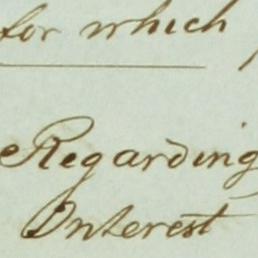 for which
Regarding
Interest